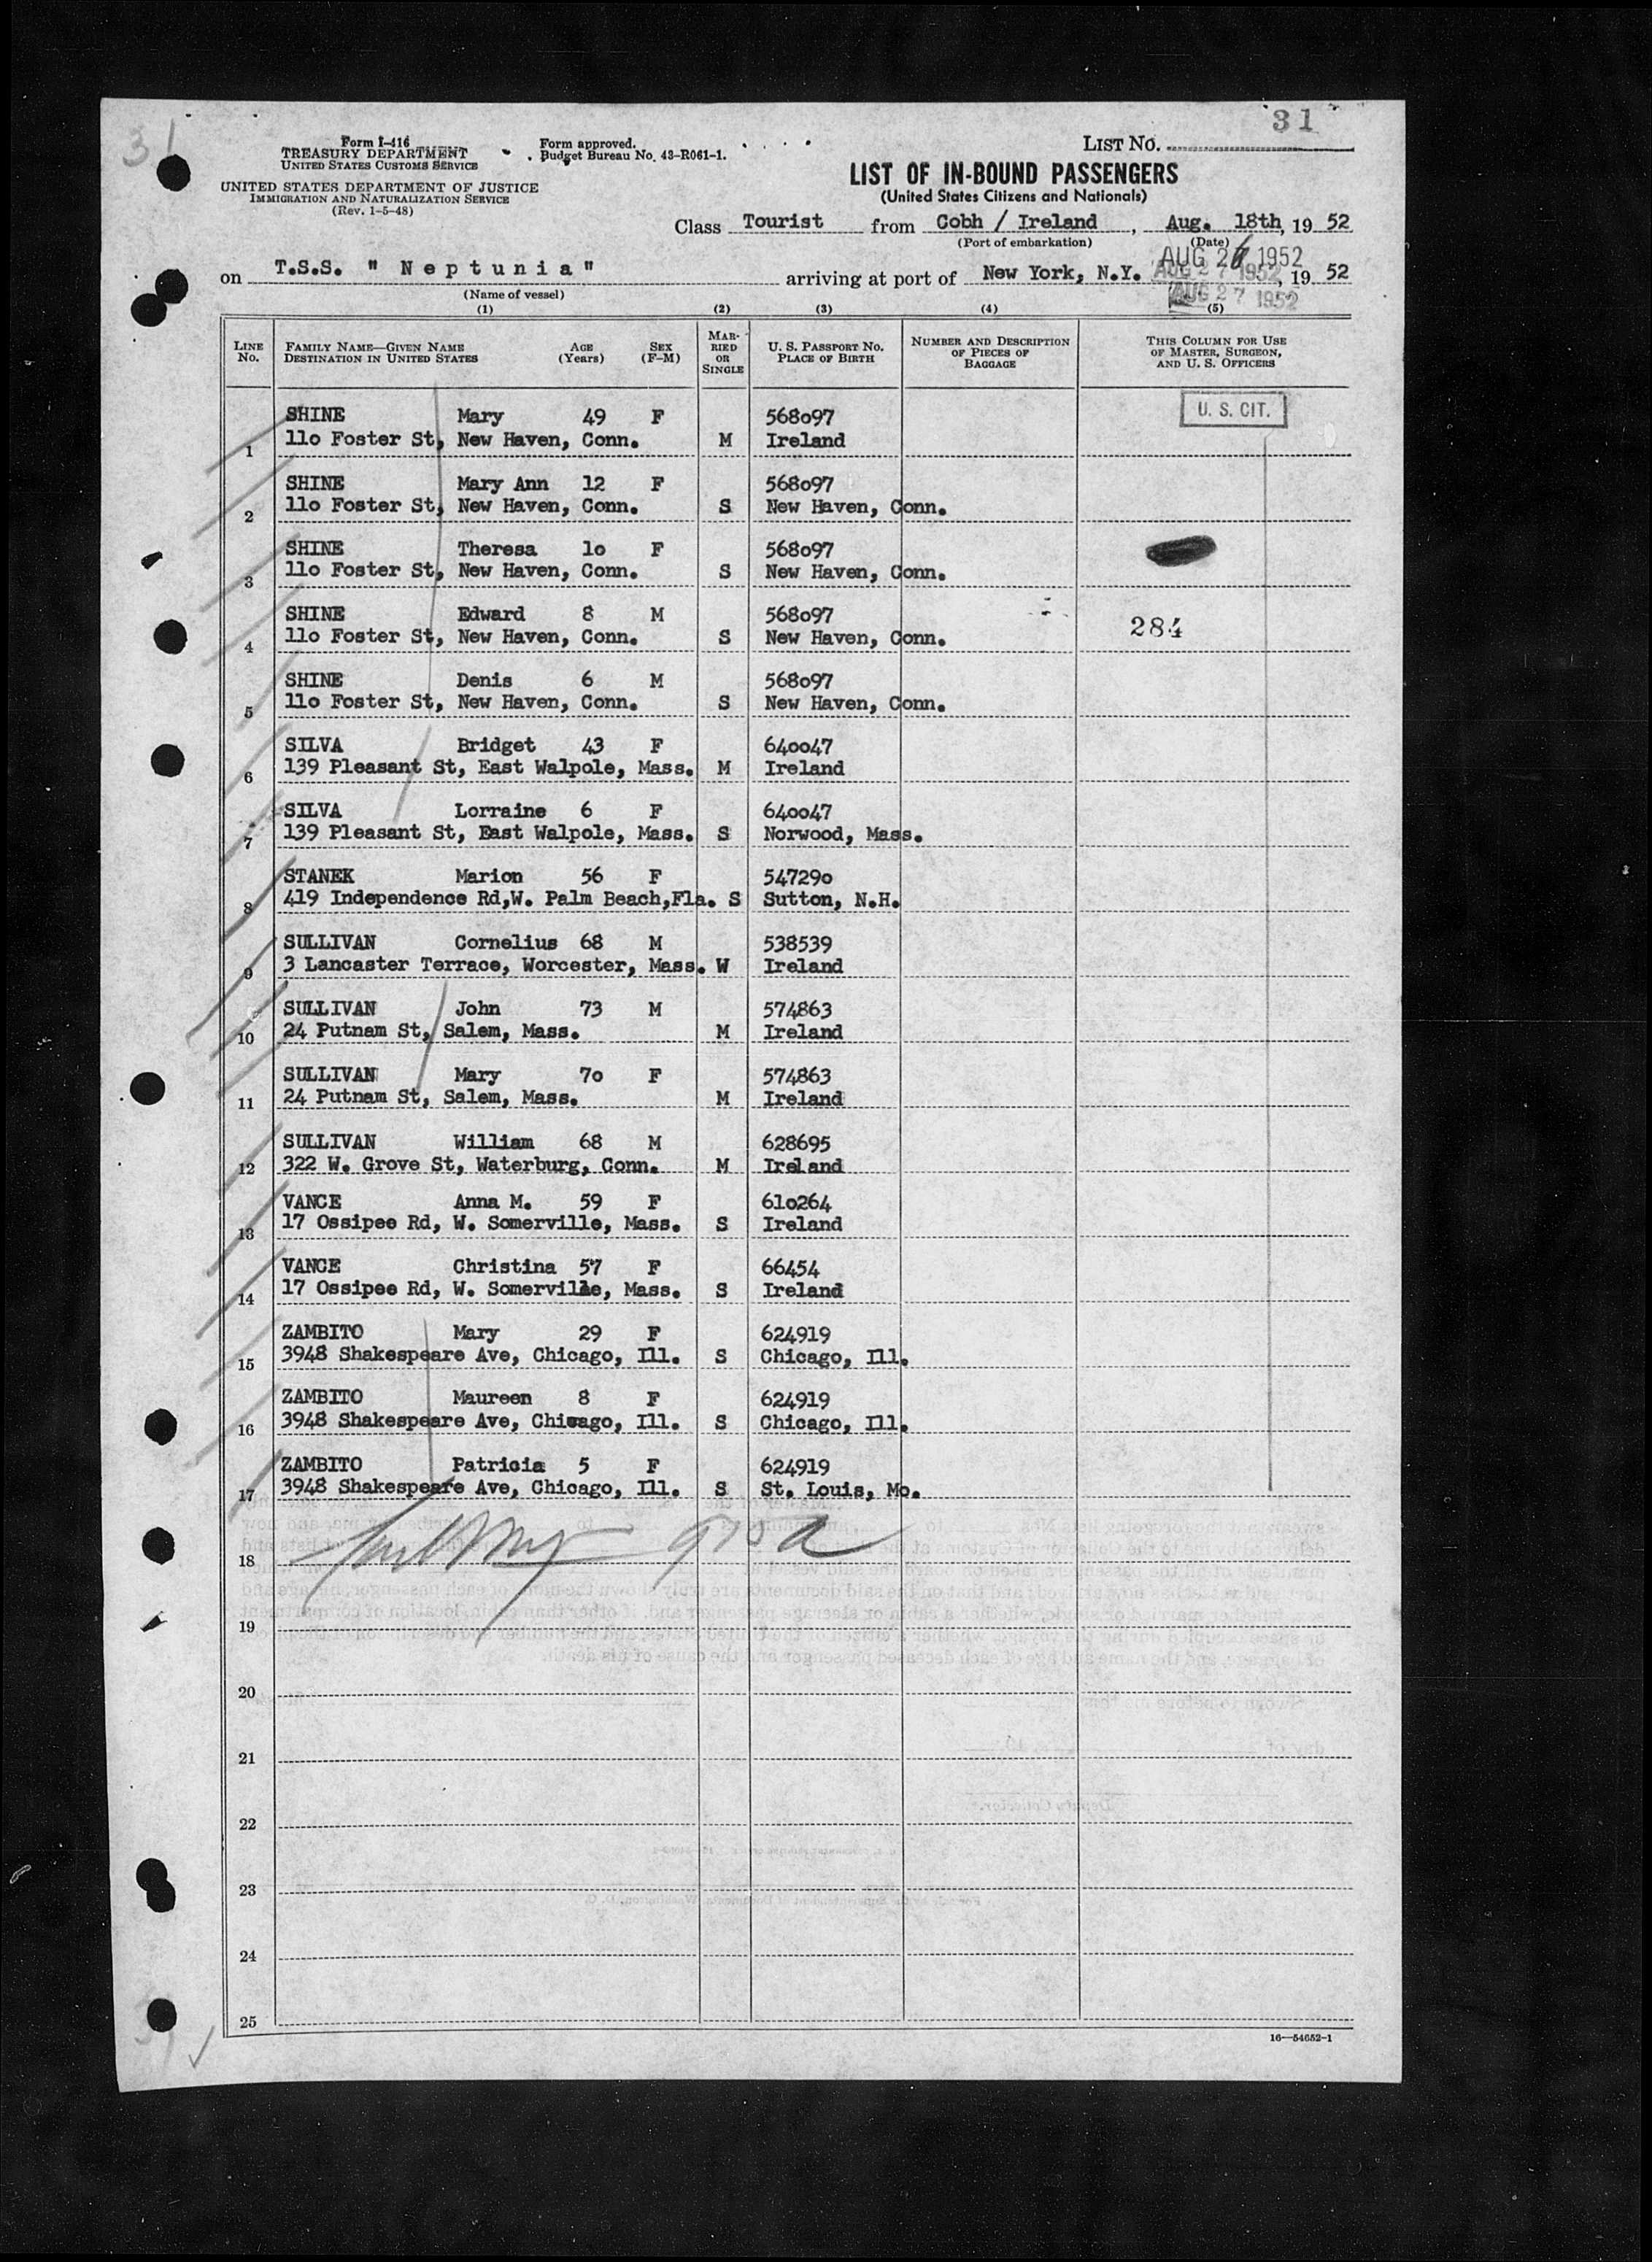 31
31
Form I-416
TREASURY DEPARTMENT
UNITED STATES CUSTOMS SERVICE
Form approved.
Budget Bureau No. 43-R061-1.
LIST NO.
UNITED STATES DEPARTMENT OF JUSTICE
IMMIGRATION AND NATURALIZATION SERVICE
(Rev. 1-5-48)
LIST OF IN-BOUND PASSENGERS
(United States Citizens and Nationals)
Class Tourist from Cobh / Ireland, Aug. 18th, 19 52
(Port of embarkation) (Date)
AUG 26 1952
on T.S.S. " Neptunia " arriving at port of New York, N.Y. AUG 27 1952, 19 52
(Name of vessel)
AUG 27 1952
(1) (2) (3) (4) (5)
LINE NO. FAMILY NAME—GIVEN NAME DESTINATION IN UNITED STATES AGE (Years) SEX (F-M) MARRIED OR SINGLE U. S. PASSPORT NO. PLACE OF BIRTH NUMBER AND DESCRIPTION OF PIECES OF BAGGAGE THIS COLUMN FOR USE OF MASTER, SURGEON, AND U. S. OFFICERS
SHINE Mary 49 F 568o97 U. S. CIT.
1 11o Foster St, New Haven, Conn. M Ireland
SHINE Mary Ann 12 F 568o97
2 11o Foster St, New Haven, Conn. S New Haven, Conn.
SHINE Theresa 1o F 568o97
3 11o Foster St, New Haven, Conn. S New Haven, Conn.
SHINE Edward 8 M 568o97
4 11o Foster St, New Haven, Conn. S New Haven, Conn. 284
SHINE Denis 6 M 568o97
5 11o Foster St, New Haven, Conn. S New Haven, Conn.
SILVA Bridget 43 F 64oo47
6 139 Pleasant St, East Walpole, Mass. M Ireland
SILVA Lorraine 6 F 64oo47
7 139 Pleasant St, East Walpole, Mass. S Norwood, Mass.
STANEK Marion 56 F 54729o
8 419 Independence Rd,W. Palm Beach,Fla. S Sutton, N.H.
SULLIVAN Cornelius 68 M 538539
9 3 Lancaster Terrace, Worcester, Mass. W Ireland
SULLIVAN John 73 M 574863
10 24 Putnam St, Salem, Mass. M Ireland
SULLIVAN Mary 7o F 574863
11 24 Putnam St, Salem, Mass. M Ireland
SULLIVAN William 68 M 628695
12 322 W. Grove St, Waterburg, Conn. M Ireland
VANCE Anna M. 59 F 61o264
13 17 Ossipee Rd, W. Somerville, Mass. S Ireland
VANCE Christina 57 F 66454
14 17 Ossipee Rd, W. Somerville, Mass. S Ireland
ZAMBITO Mary 29 F 624919
15 3948 Shakespeare Ave, Chicago, Ill. S Chicago, Ill.
ZAMBITO Maureen 8 F 624919
16 3948 Shakespeare Ave, Chicago, Ill. S Chicago, Ill.
ZAMBITO Patricia 5 F 624919
17 3948 Shakespeare Ave, Chicago, Ill. S St. Louis, Mo.
18
19
20
21
22
23
24
25
16—54652-1